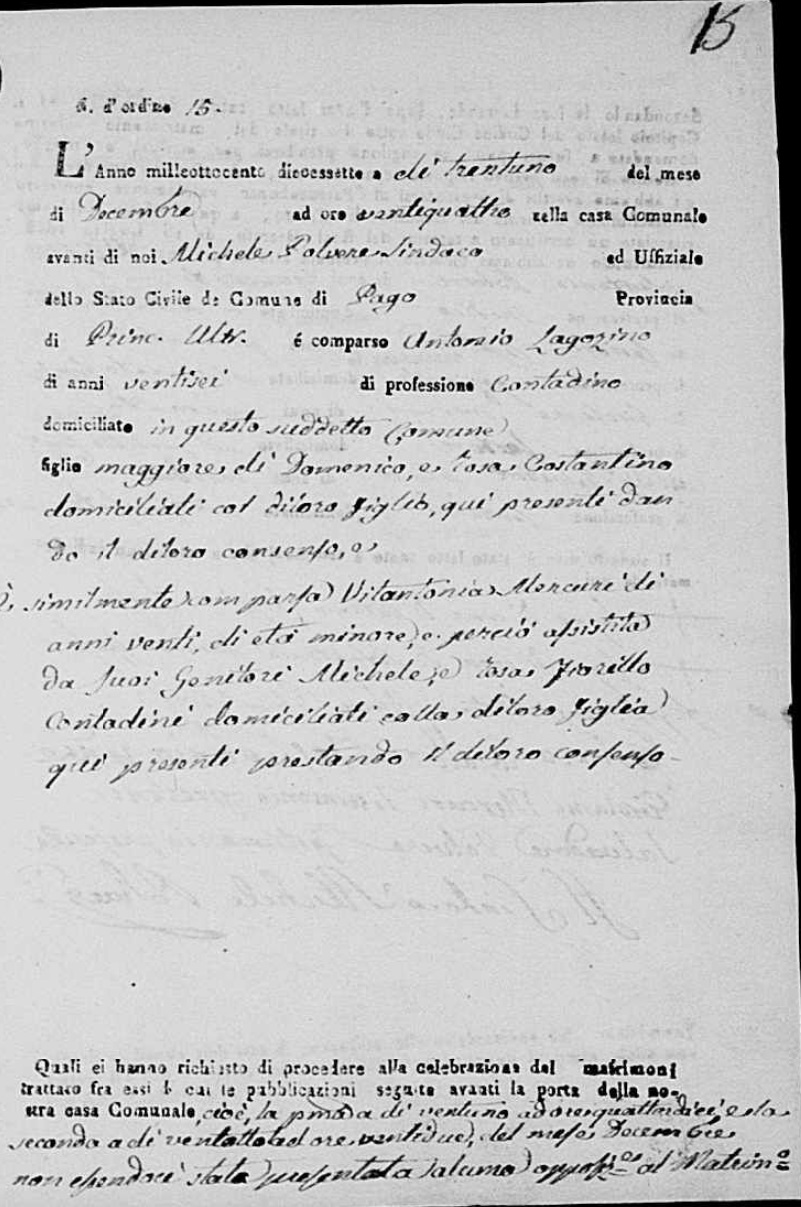 15
N. d'ordine 15.
L'Anno milleottocento diecessette a dì trentuno del mese
di Decembre ad ore ventiquattro nella casa Comunale
avanti di noi Michele Polvere Sindaco ed Uffiziale
dello Stato Civile de Comune di Pago Provincia
di Princ. Ultr. é comparso Antonio Lagozino
di anni ventisei di professione Contadino
domiciliato in questo suddetto Comune
figlio maggiore di Domenico, e Rosa Costantino
domiciliati col diloro figlio, qui presenti dan
do il diloro consenso, e
È similmente comparsa Vitantonia Mercuri di
anni venti, di età minore, e perciò assistita
da suoi Genitori Michele, e Rosa Fiorillo
Contadini domiciliati colla diloro figlia
qui presenti prestando il diloro consenso.
Quali ci hanno richiesto di procedere alla celebrazione del matrimoni
trattato fra essi le cui le pubblicazioni seguite avanti la porta della no-
stra casa Comunale, cioè, la pma a di ventuno ad ore quattordici, e la
seconda a di ventotto ad ore ventidue, del mese Decembre
non essendoci stata presentata alcuna opposizne al Matrimo